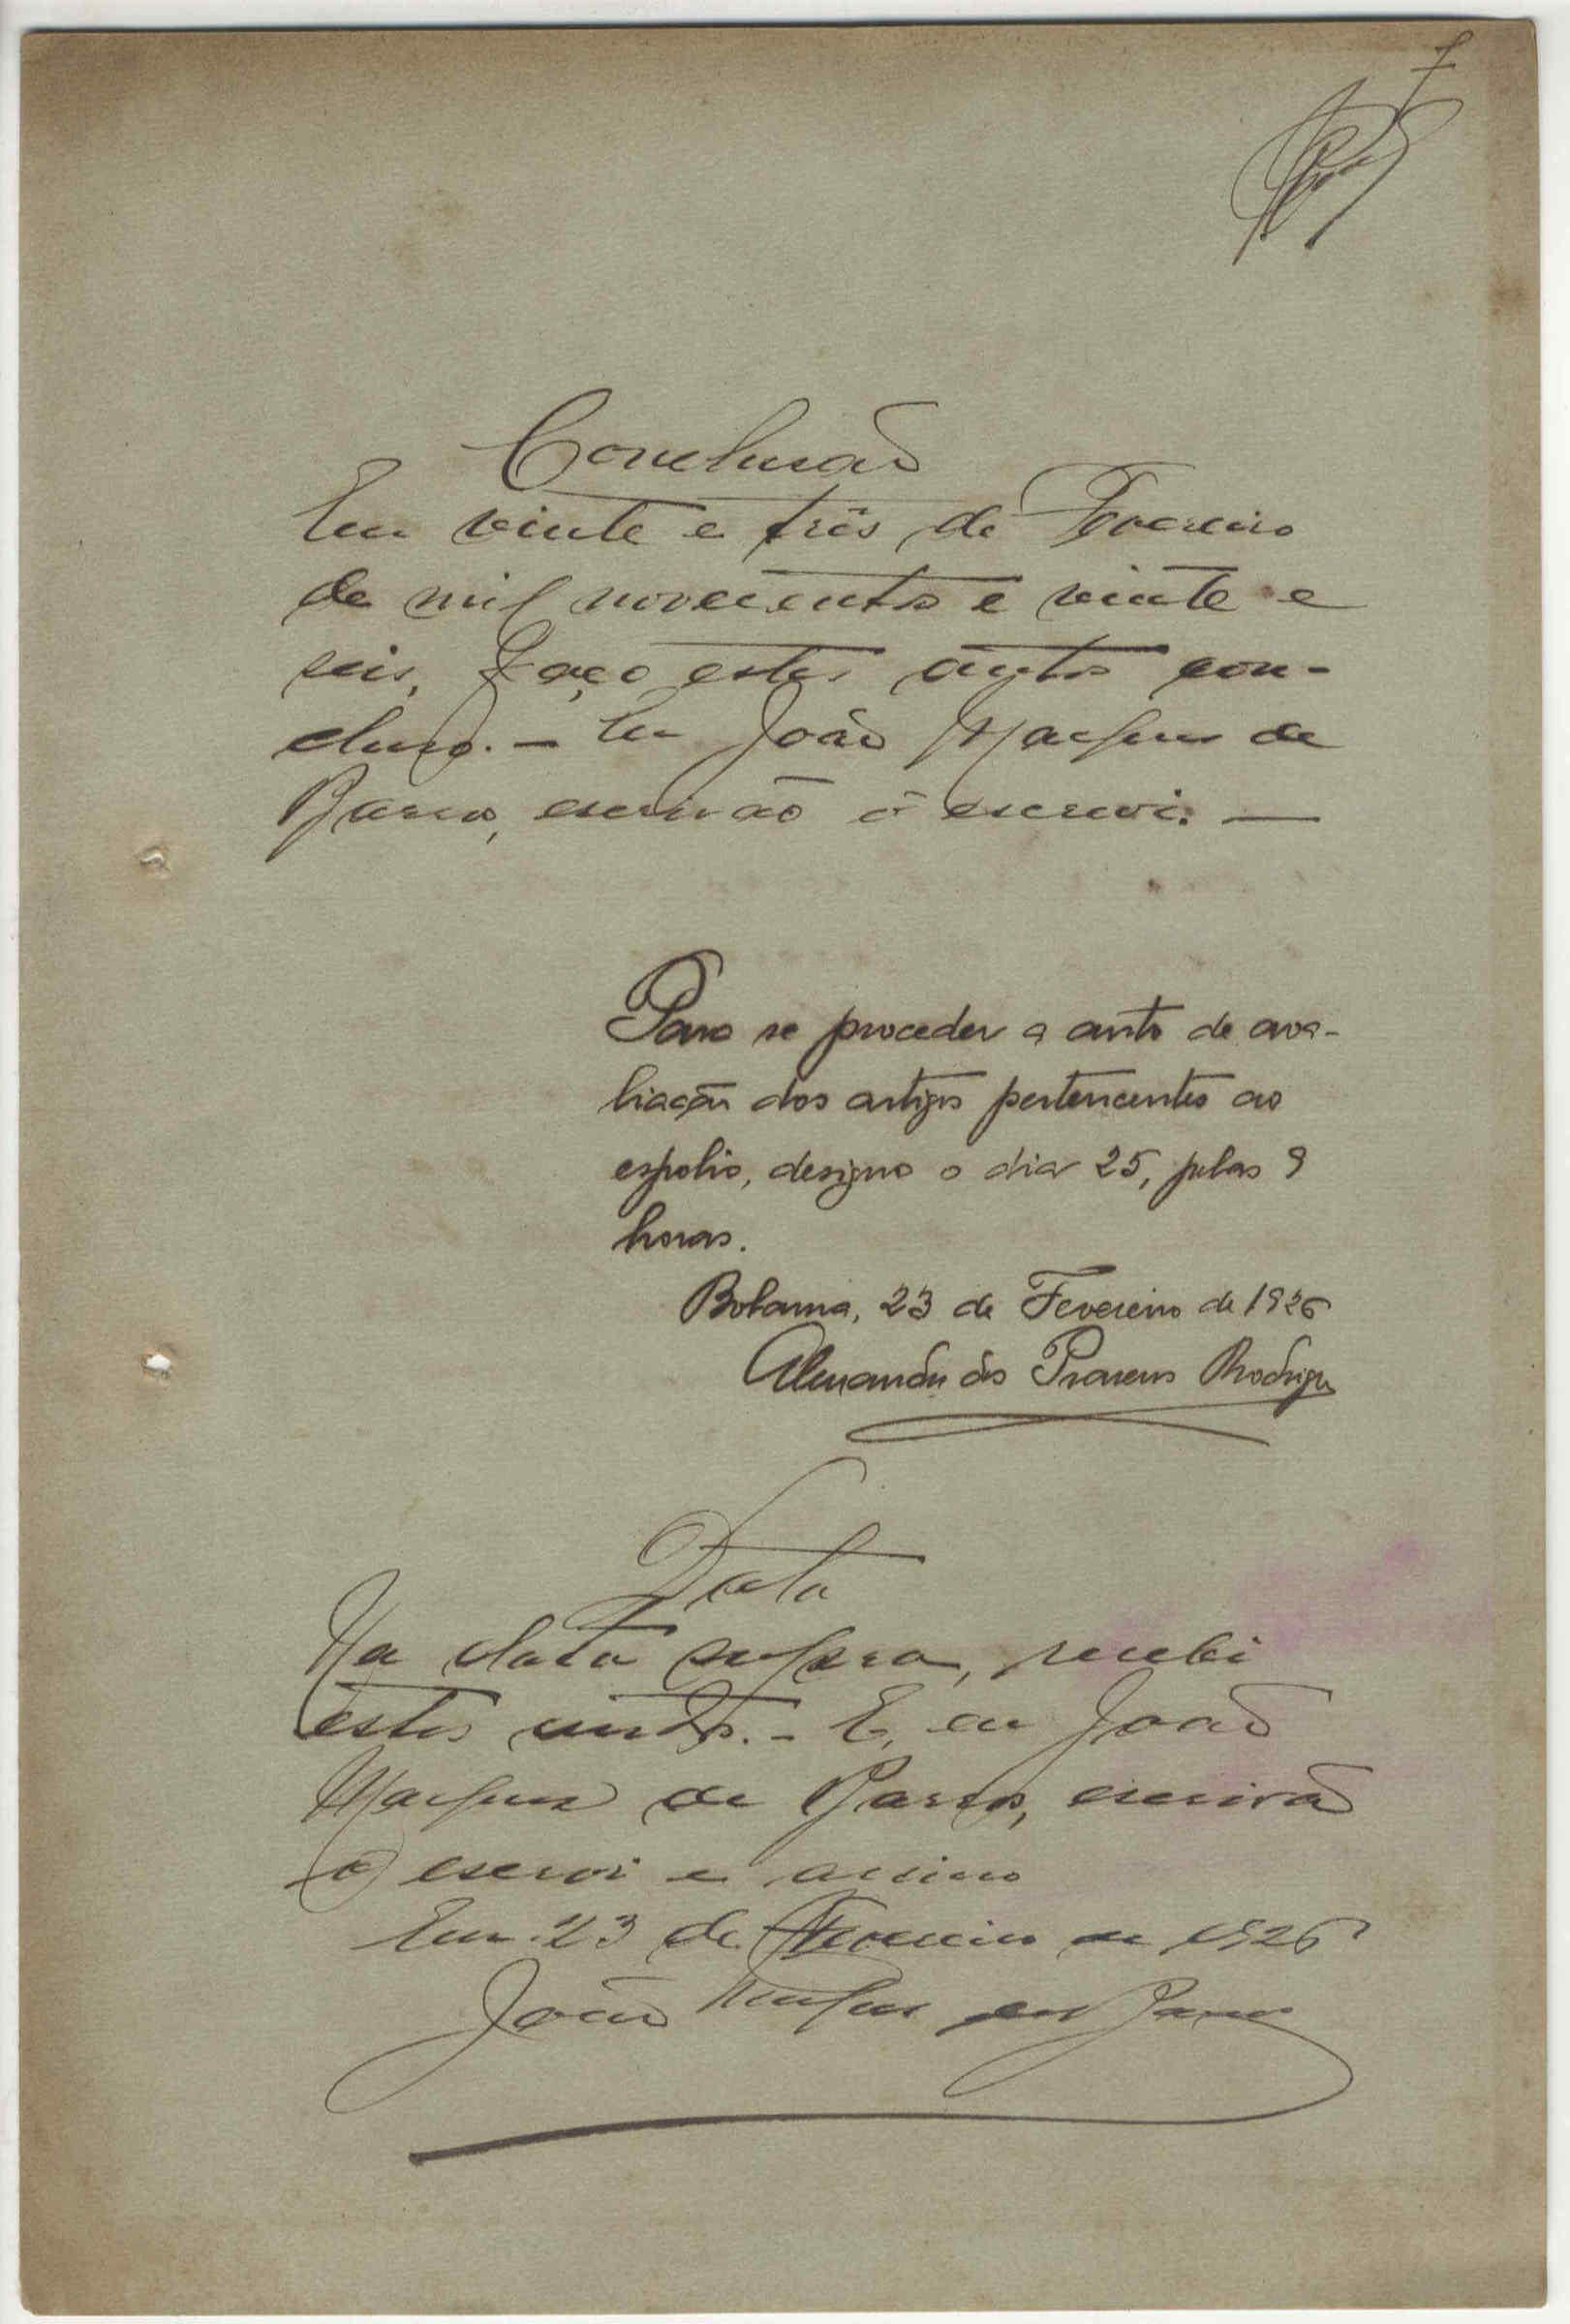 7
Conclusão
Em vinte e três de Fevereiro
de mil novecentos e vinte e
seis, faço estes autos con-
clusos. — Eu João Marques de
Barros, escrivão o escrevi. —
Para se proceder a auto de ava-
liação dos artigos pertencentes ao
espolio, designo o dia 25, pelas 9
horas.
Bolama, 23 de Fevereiro de 1926
Alexandre dos Prazeres Rodrigues
Data
Na data supra, recebi
estes autos. - E, eu João
Marques de Barros, escrivão
o escrevi e assino
Em 23 de Fevereiro de 1926
João Marques de Barros